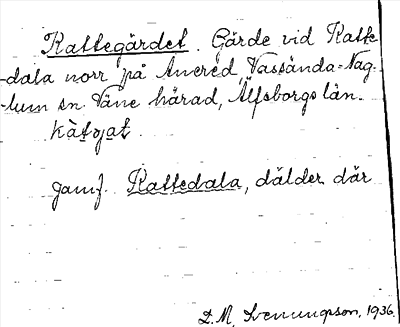 Kattegärdet. Gärde vid Katte-
-dala norr på Anered, Vassända-Nag-
-lum sn. Väne härad, Älfsborgs län.
kàtɟat.
Jämf. Kattedala, dälder där
D. M. Svenungsson, 1936.